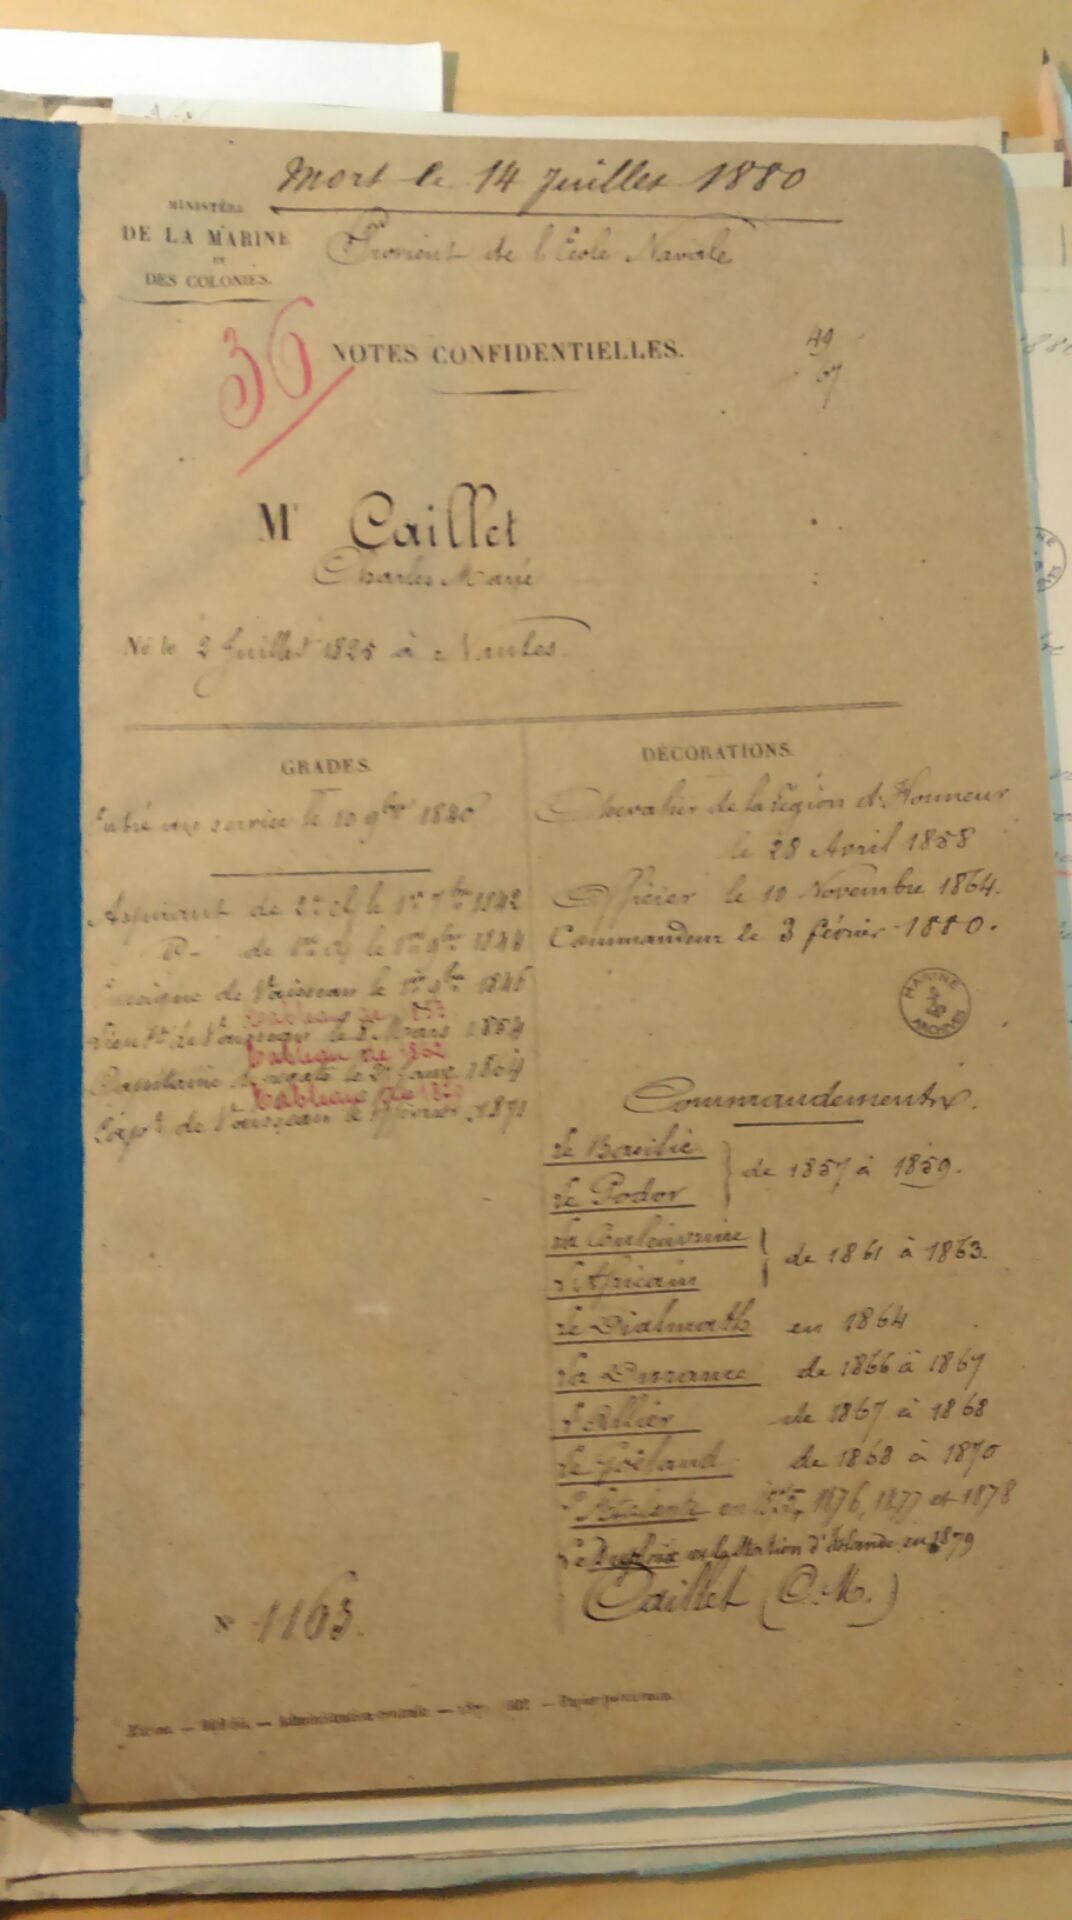 Mort le 14 Juillet 1880
MINISTÈRE
DE LA MARINE
ET
DES COLONIES.
Provient de l'Ecole Navale
36
NOTES CONFIDENTIELLES.
49
67
Mr Caillet
Charles Marie
Né le 2 Juillet 1825 à Nantes
GRADES.
Entré au service le 10 9bre 1840
Aspirant de 2e cl. le 1er 7bre 1842
de 1re cl. le 1er 9bre 1844
Enseigne de Vaisseau le 1er 9bre 1846
Tableau de 1853
Lieutt de Vaisseau le 8 Mars 1854
Tableau de 1862
Capitaine de frégate le 27 1864
Tableau de 1870
Capne de Vaisseau le février 1871
DÉCORATIONS.
Chevalier de la Légion d'Honneur
le 28 Avril 1858
Officier le 10 Novembre 1864.
Commandeur le 3 février 1880.
MARINE
ARCHIVES
Commandements.
Le Basilic
Le Podor
de 1857 à 1859.
La Couleuvrine
L'Africain
de 1861 à 1863.
Le Dialmath en 1864
La Durance de 1866 à 1867
L'Allier de 1867 à 1868
Le Goëland de 1868 à 1870
L'Atalante en 1876, 1877 et 1878
Le Dupleix et la Station d'Islande en 1879
Caillet (C.M.)
N° 1163.